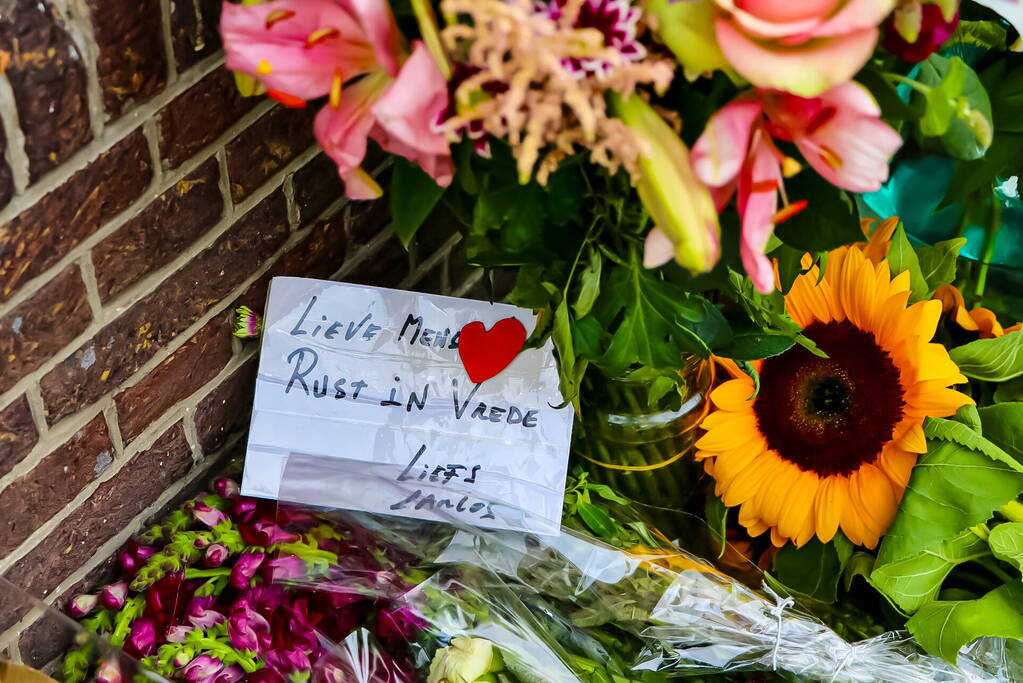 LIEVE MENS
RUST IN VREDE
LIEFS
CARLOS